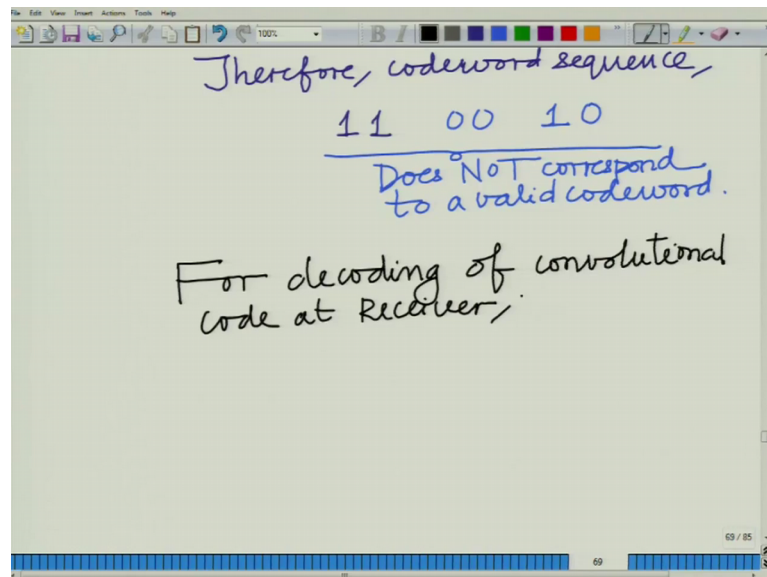 File Edit View Insert Actions Tools Help
100%
B I
Therefore, codeword sequence,
11 00 10
Does NOT correspond
to a valid codeword.
For decoding of convolutional
code at Receiver,
69 / 85
69